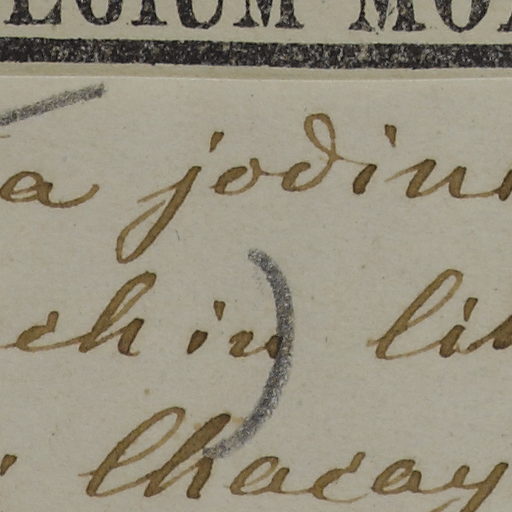 EGIUM MO
a jodin
ch in) lin
Chacay